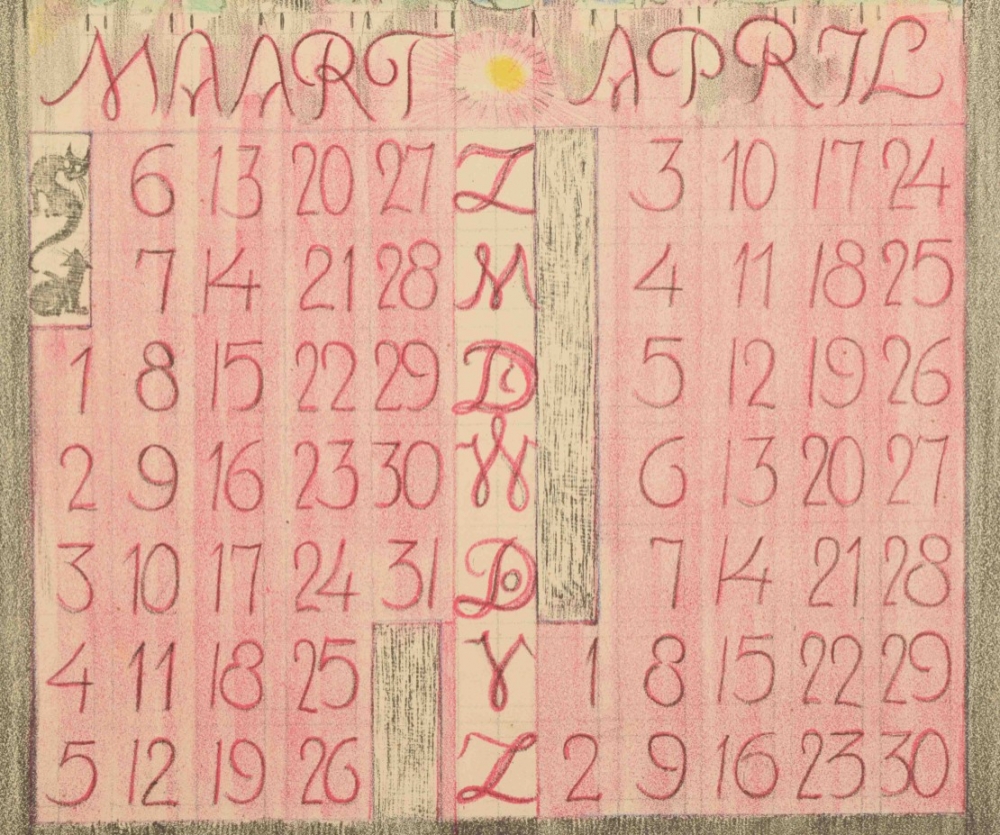 MAART APRIL
6 13 20 27 Z 3 10 17 24
7 14 21 28 M 4 11 18 25
1 8 15 22 29 Di 5 12 19 26
2 9 16 23 30 W 6 13 20 27
3 10 17 24 31 Do 7 14 21 28
4 11 18 25 V 1 8 15 22 29
5 12 19 26 Z 2 9 16 23 30